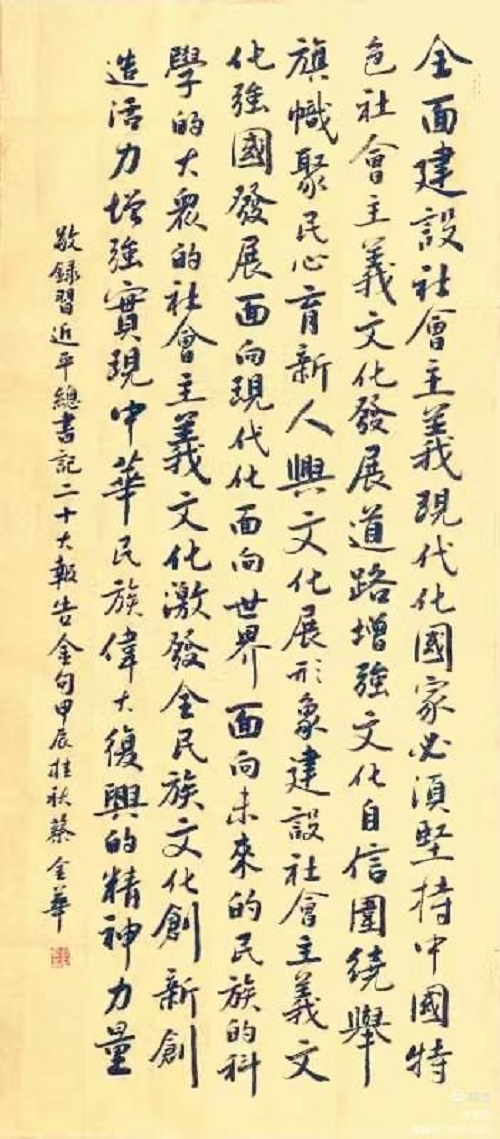 全面建設社會主義現代化國家必須堅持中國特
色社會主義文化發展道路增強文化自信圍繞舉
旗幟聚民心育新人興文化展形象建設社會主義文
化強國發展面向現代化面向世界面向未來的民族的科
學的大眾的社會主義文化激發全民族文化創新創
造活力增強實現中華民族偉大復興的精神力量
敬録習近平總書記二十大報告金句甲辰桂秋蔡金華